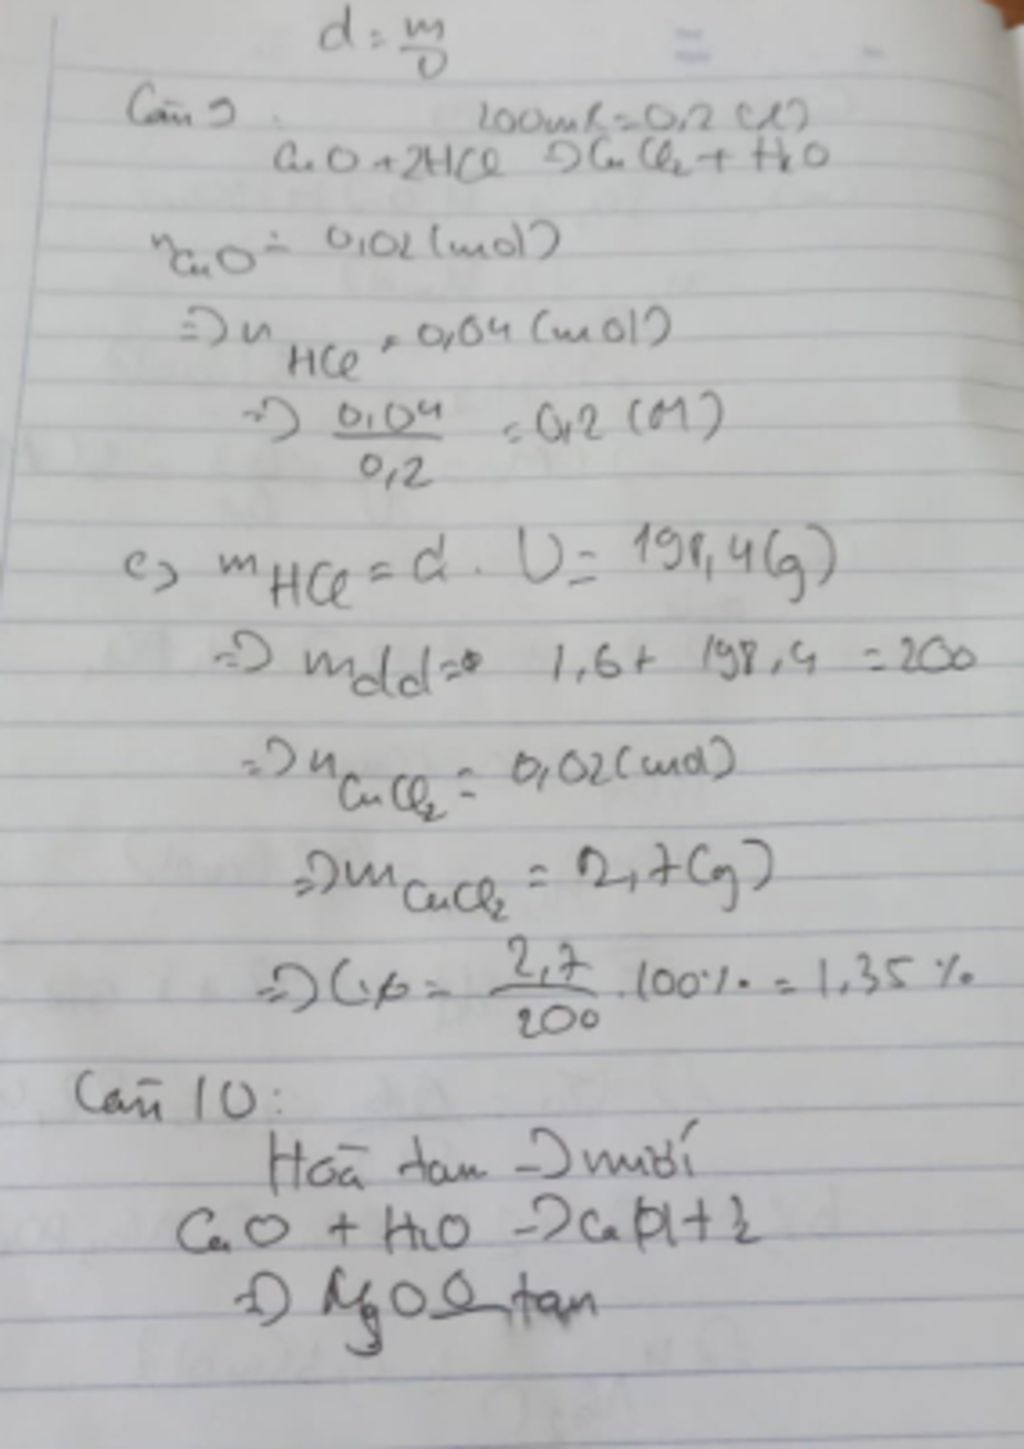 d = m/V
Câu 9
200ml = 0,2 (l)
CuO + 2HCl => CuCl2 + H2O
nCuO = 0,02 (mol)
=> nHCl = 0,04 (mol)
=> 0,04/0,2 = 0,2 (M)
c) mHCl = d . V = 198,4 (g)
=> mdd = 1,6 + 198,4 = 200
=> nCuCl2 = 0,02 (mol)
=> mCuCl2 = 2,7 (g)
=> C% = 2,7/200 . 100% = 1,35%
Câu 10:
Hoà tan -> muối
CaO + H2O ->
=> MgO tan